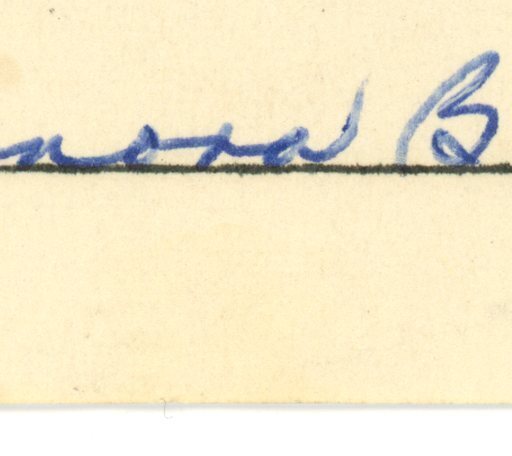 nora B